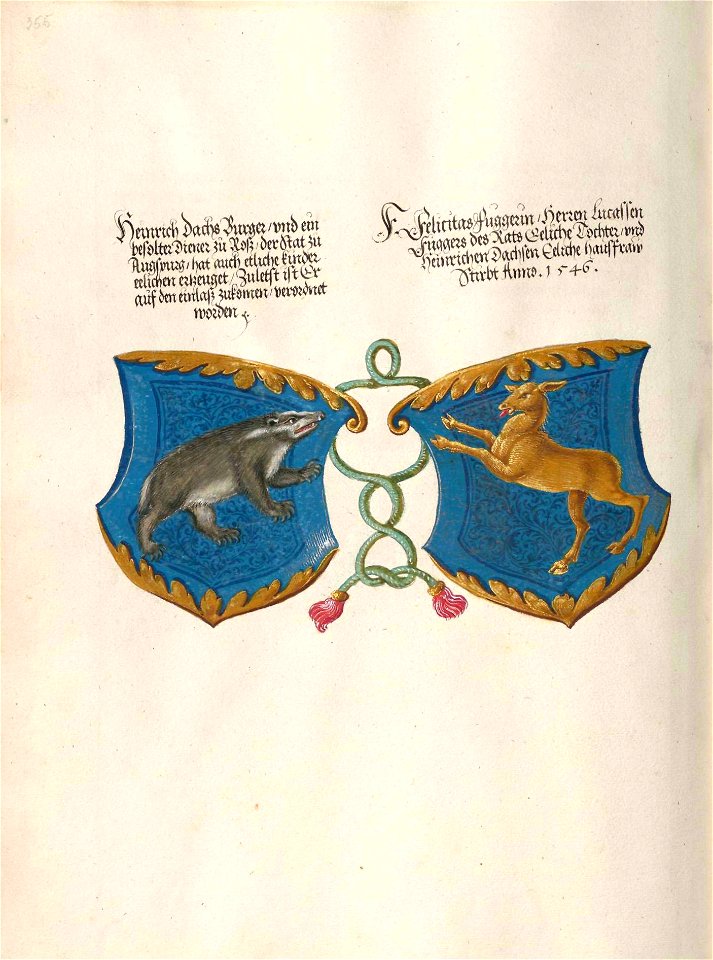 355
Heinrich Dachs Burger/vnd ein
besolter Diener zu Roß/der stat zu
Augspurg/hat auch etliche kinder
eelichen erzeuget/Zuletst ist Er
auf den einlaß zukomen/verordnet
worden
F. Felicitas Fuggerin/Herren Lucassen
Fuggers des Rats Eeliche Tochter/vnd
Heinrichen Dachsen Eeliche hausfraw
Stirbt Anno. 1546.